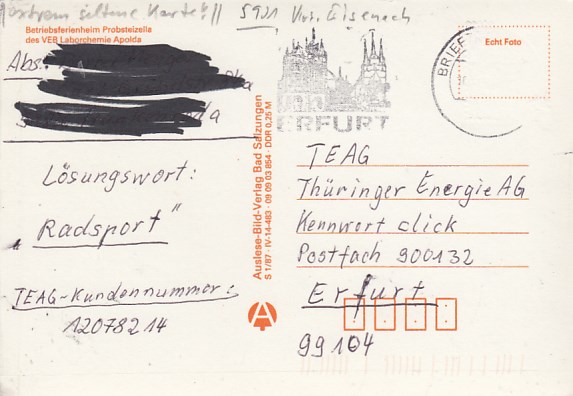 extrem seltene Karte!!
5901 Krs. Eisenach
Betriebsferienheim Probsteizella
des VEB Laborchemie Apolda
Abs.
Lösungswort:
„Radsport"
TEAG-Kundennummer:
12078214
Auslese-Bild-Verlag Bad Salzungen
S 1/87 · IV-14-483 · 09 09 03 854 · DDR 0,25 M
ERFURT
BRIEF
Echt Foto
TEAG
Thüringer Energie AG
Kennwort click
Postfach 900132
Erfurt
99104